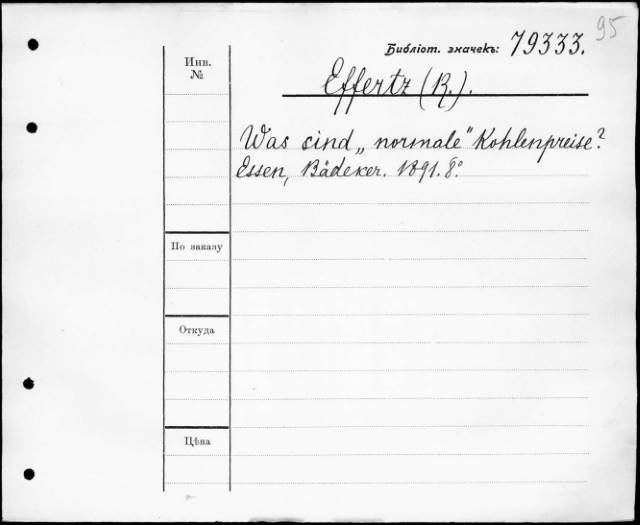 95
Библіот. значекъ: 79333.
Инв. №
Effertz (R.).
Was sind „normale“ Kohlenpreise?
Essen, Bädeker. 1891. 8º.
По заказу
Откуда
Цѣна